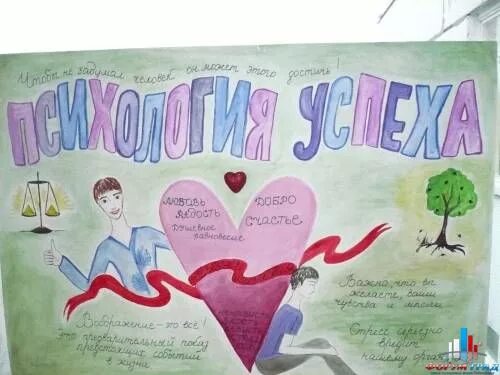 Чтобы не задумал человек он может этого достичь!
ПСИХОЛОГИЯ УСПЕХА
ЛЮБОВЬ
РАДОСТЬ
ДУШЕВНОЕ
РАВНОВЕСИЕ
ДОБРО
СЧАСТЬЕ
НЕНАВИСТЬ
Воображение-это всё!
это предварительный показ
предстоящих событий
в жизни
Важно, что вы
желаете, ваши
чувства и мысли
Стресс серьезно
вредит
нашему